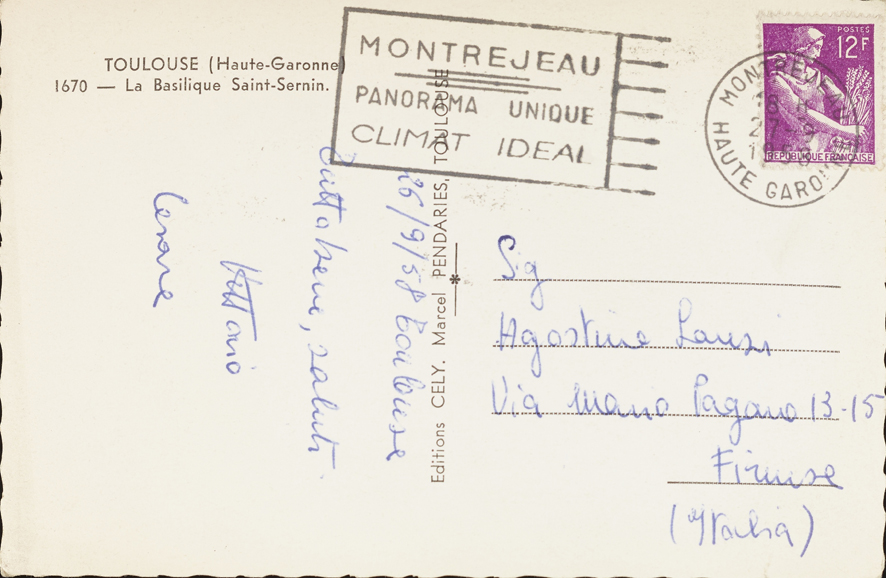 TOULOUSE (Haute-Garonne)
1670 — La Basilique Saint-Sernin.
MONTREJEAU
PANORAMA UNIQUE
CLIMAT IDEAL
POSTES
12F
REPUBLIQUE FRANÇAISE
MONTREJEAU
27-9
HAUTE GARONNE
Editions CELY. Marcel PENDARIES, TOULOUSE
26/9/58 Toulouse
Tutto bene, saluti
Vittorio
Cesare
Sig
Agostino
Via Mario Pagano 13-15
Firenze
(Italia)